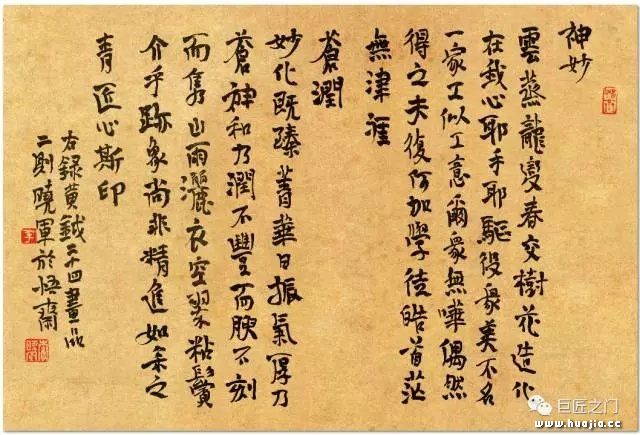 神妙
雲蒸龍變春交樹花造化
在我心耶手耶驅役衆美不名
一家工似工意爾衆無嘩偶然
得之夫復何加學徒皓首茫
無津涯
蒼潤
妙化既臻菁華日振氣厚乃
蒼神和乃潤不豐而腴不刻
而雋山雨灑衣空翠粘鬢
介乎跡象尚非精進如枀之
青匠心斯印
右錄黄鉞二十四畫品
二則曉軍於悟齋
巨匠之门
www.huajia.cc